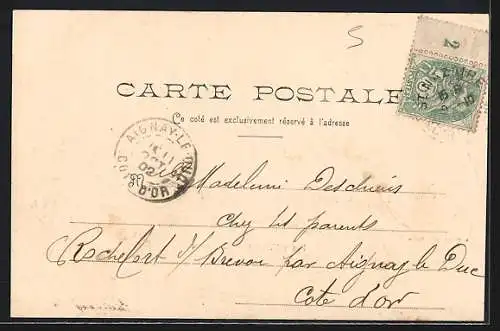 5
2
CARTE POSTALE
Ce coté est exclusivement réservé à l'adresse
AIGNAY-LE-DUC
11
OCT
02
COTE D'OR
Madeleine Deschiens
Chez ses parents
Rochefort s/ Brevon par Aignay le Duc
Cote d'or